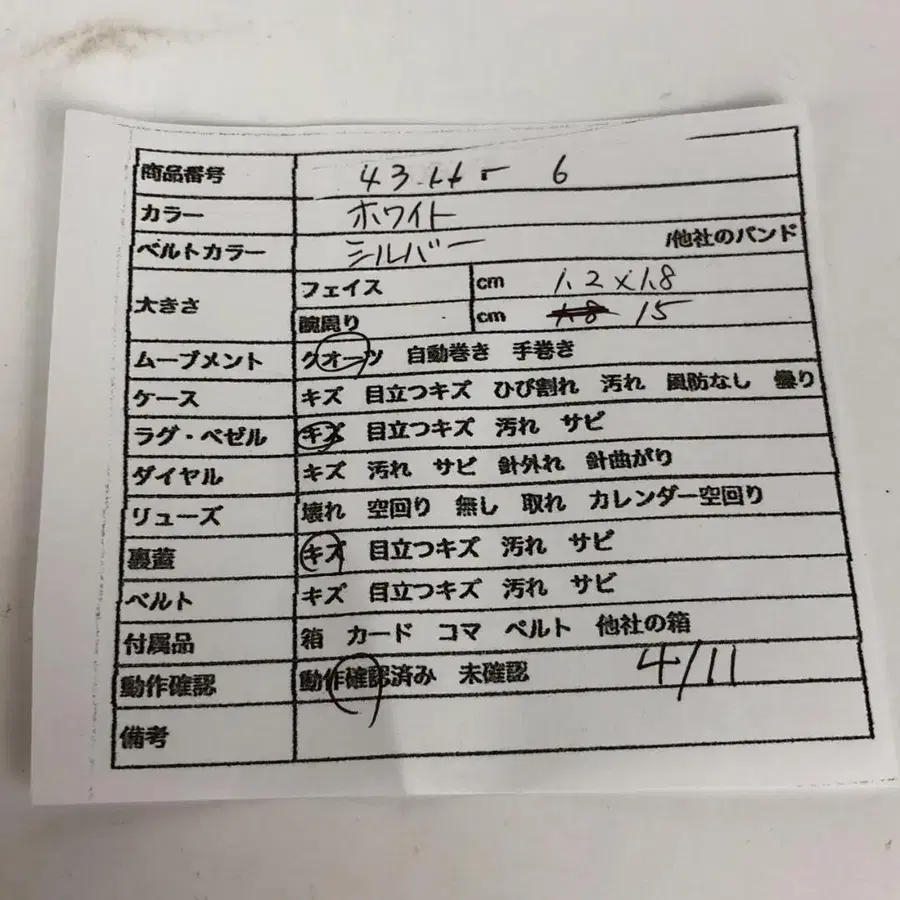 商品番号 43 サナー 6
カラー ホワイト
ベルトカラー シルバー /他社のバンド
大きさ フェイス cm 1.2×1.8
腕周り cm 1.8 15
ムーブメント クオーツ 自動巻き 手巻き
ケース キズ 目立つキズ ひび割れ 汚れ 風防なし 曇り
ラグ・ベゼル キズ 目立つキズ 汚れ サビ
ダイヤル キズ 汚れ サビ 針外れ 針曲がり
リューズ 壊れ 空回り 無し 取れ カレンダー空回り
裏蓋 キズ 目立つキズ 汚れ サビ
ベルト キズ 目立つキズ 汚れ サビ
付属品 箱 カード コマ ベルト 他社の箱
動作確認 動作確認済み 未確認 4/11
備考